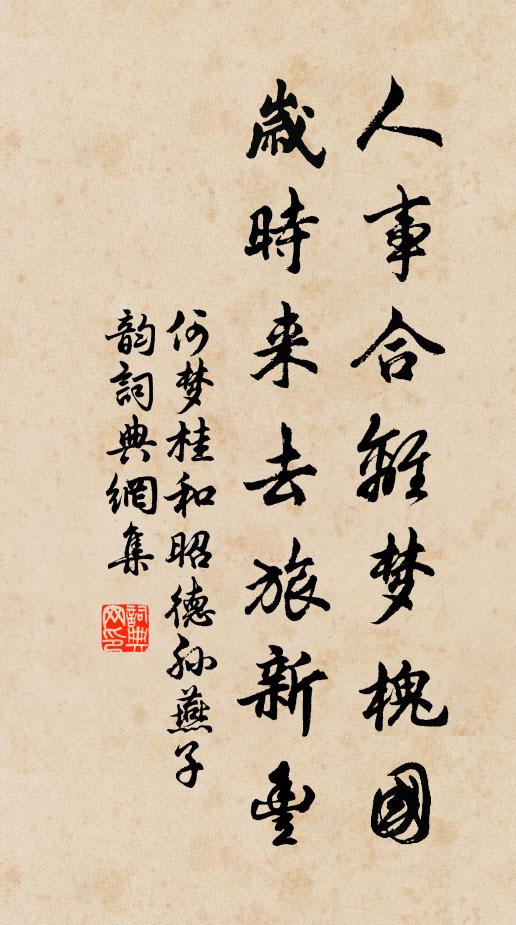 人事合離梦槐國
歲時来去旅新豐
何梦桂和昭德孙燕子
韵詞典網集
詞典网印